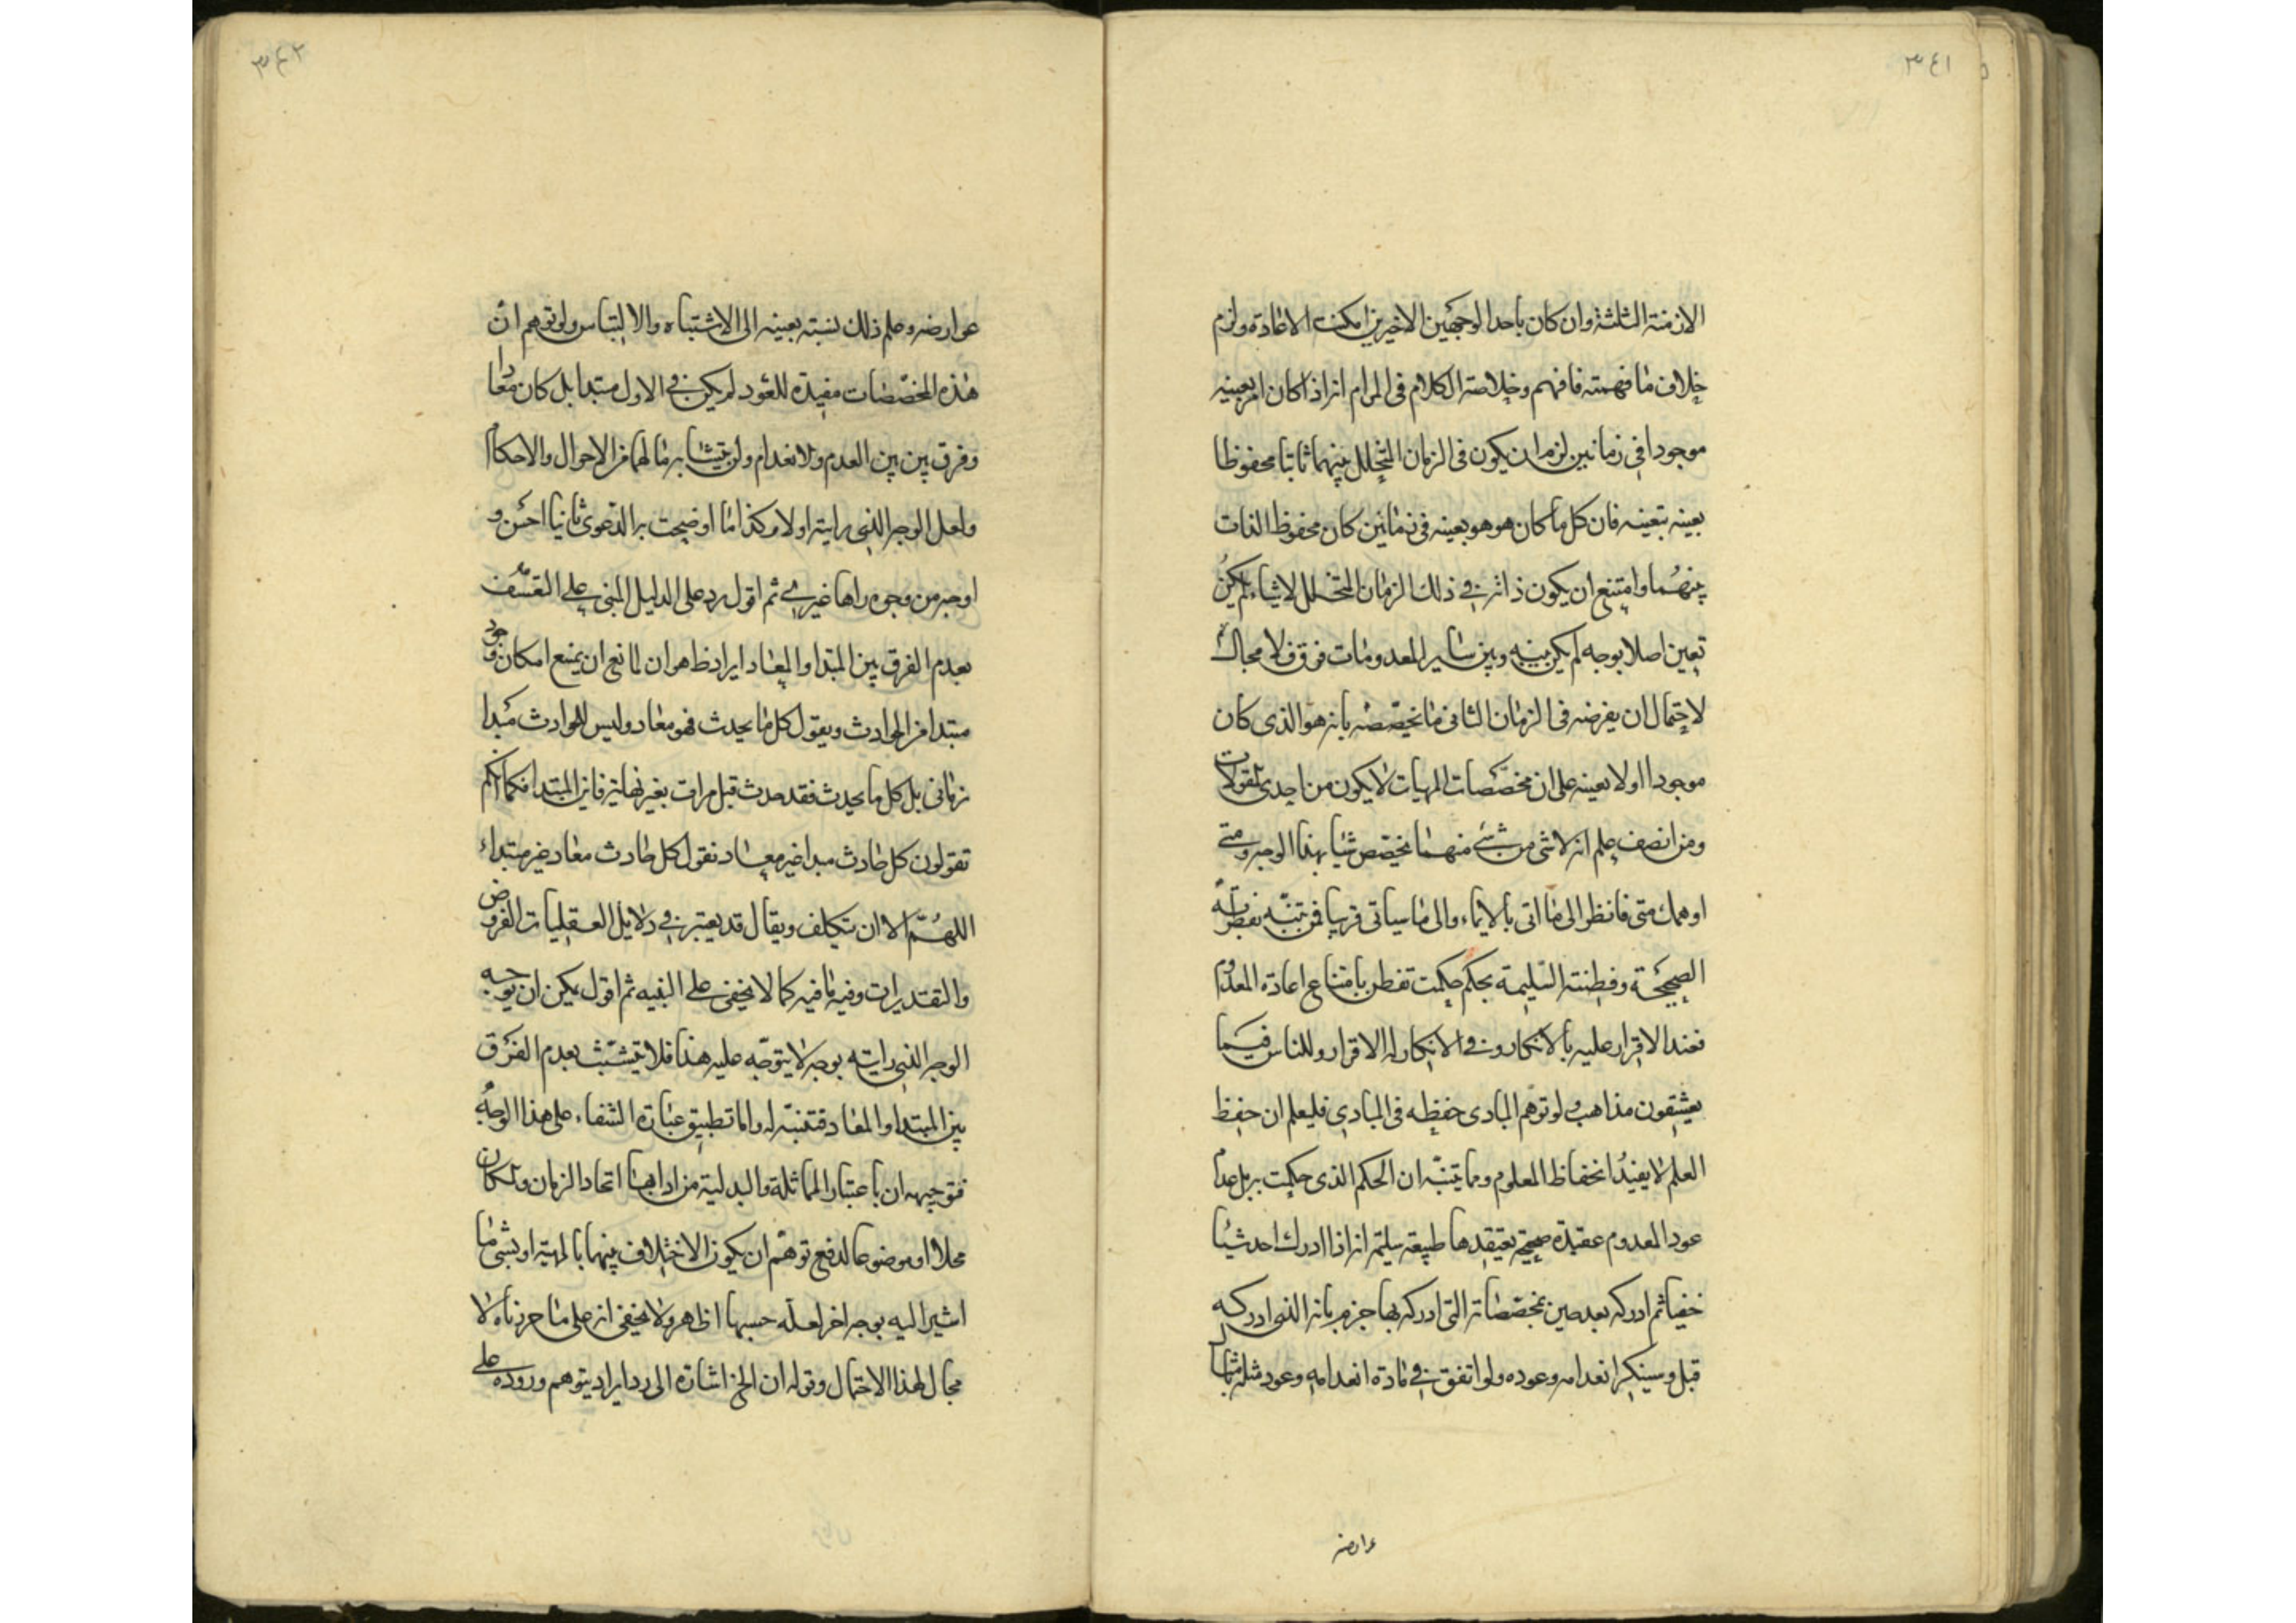 ٣٤١
الازمنة الثلثة وان كان باحد الوجهين الاخيرين امكنت الاعادة ولزم
خلاف ما فهمته فافهم وخلاصة الكلام فى المرام انه اذا كان امر بعينه
موجودا فى زمانين لزم ان يكون فى الزمان المتخلل بينهما ثابتا محفوظا
بعينه بتعينه فان كل ما كان هو هو بعينه فى زمانين كان محفوظ الذات
بينهما وامتنع ان يكون ذاته فى ذلك الزمان المتخلل لاشياء لم يكن
تعين اصلا بوجه لم يكن بينه وبين ساير المعدومات فرق فلا مجال
لاحتمال ان يفرضه فى الزمان الثانى ما يخصصه بانه هو الذى كان
موجودا اولا بعينه على ان مخصصات المهيات لا يكون من احدى المقولات
ومن انصف علم انه لا شى من شئ منهما يخصص شيئا بهذا الوجه ومتى
اوهمك متى فانظر الى ما اتى بالايماء والى ما سياتى قريبا فمن تنبه بفطرته
الصحيحة وفطنته السليمة بحكم حكمت تفطن بامتناع اعادة المعدوم
فعند الاقرار عليه بالانكار وفى الانكار له الاقرار وللناس فيما
يعشقون مذاهب ولو توهم البادى حفظه فى المبادى فليعلم ان حفظ
العلم لا يفيد انحفاظ المعلوم ومما ينبه ان الحكم الذى حكمت به بل عدم
عود المعدوم عقيدة صحيحة يعتقدها طبيعة سليمة انه اذا ادرك احد شيئا
خفيا ثم ادركه بعد حين بمخصصاته التى ادركه بها جزم بانه الذى ادركه
قبل وسينكر انعدامه وعوده ولو اتفق فى مادة انعدامه وعود مثله
عوارضه
٣٤٢
عوارضه وعلم ذلك نسبته بعينه الى الاشتباه والالتباس ولو توهم ان
هذه المخصصات مفيدة للعود لم يكن فى الاول مبتدا بل كان معادا
وفرق بين بين العدم والانعدام ولن يتشابه ما لهما من الاحوال والاحكام
ولعل الوجه الذى رايته اولا وكذا ما اوضحت به الدعوى ثانيا احسن و
اوجه من وجوه راها غيرى ثم اقول يرد على الدليل المبنى على التعسف
بعدم الفرق بين المبتدا والمعاد ايراد ظاهر ان لمانع ان يمنع امكان وجود
مبتدا من الحوادث ويقول كل ما يحدث فهو معاد وليس للحوادث مبدا
زمانى بل كل ما يحدث فقد حدث قبل مرات بغير نهاية فاين المبتدا فكما انكم
تقولون كل حادث مبدا غير معاد نقول كل حادث معاد غير مبتداء
اللهم الا ان يتكلف ويقال قد يعتبر فى دلايل العقليات الفروض
والتقديرات وفيه ما فيه كما لا يخفى على النبيه ثم اقول يمكن ان يوجه
الوجه الذى رايته بوجه لا يتوجه عليه هذا فلا يتشبث بعدم الفرق
بين المبتدا والمعاد فتنبه له واما تطبيق عبارة الشفاء على هذا الوجه
فتوجيهه ان باعتبار المماثلة والبدلية من ادابها اتحاد الزمان والمكان
محلا او موضوعا لدفع توهم ان يكون الاختلاف بينهما بالمهية او بشى ما
اشير اليه بوجه اخر لعله حسبها اظاهر ولا يخفى انه على ما حررناه لا
مجال لهذا الاحتمال وقوله ان الخ اشارة الى رد ايراد يتوهم وروده على